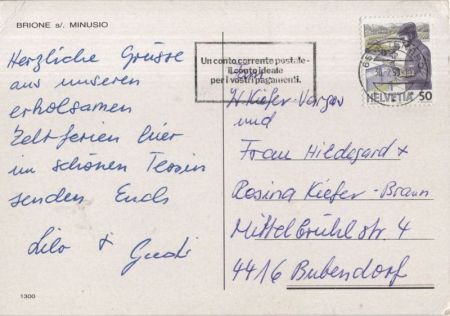 BRIONE s/. MINUSIO
Herzliche Grüsse
aus unseren
erholsamen
Zeltferien hier
im schönen Tessin
senden Euch
Lilo +
1300
Un conto corrente postale -
il conto ideale
per i vostri pagamenti.
HELVETIA 50
W. Kiefer-Vargas
und
Frau Hildegard +
Rosina Kiefer-Braun
Mittelbrühlstr. 4
4416 Bubendorf